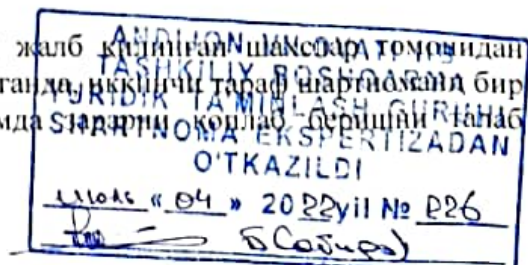 жалб қилинган шахслар томонидан
ганда, иккинчи тараф шартномани бир
мда зарарни қоплаб беришни талаб
TASHKILIY BOSHQARMA
YURIDIK TA'MINLASH GURUHI
SHARTNOMA EKSPERTIZADAN
O'TKAZILDI
« 04 » 2022 yil № 226